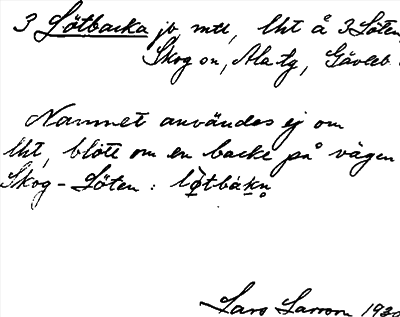 3 Lötbacka jb, mtl, lht å 3 Löten,
Skog on, Ala tg, Gävleb.
Namnet användes ej om
lht, blott om en backe på vägen
Skog - Löten : lø̀tbákn̥
Lars Larson 1930